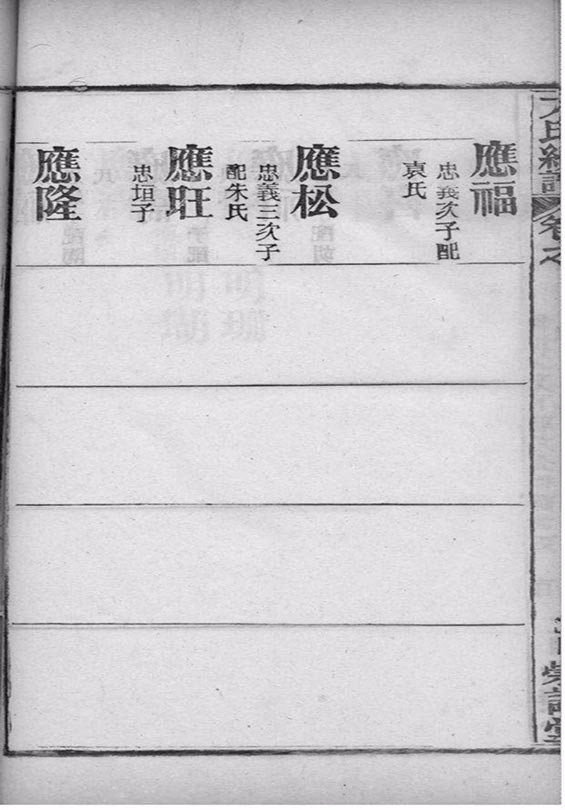 應福
忠義次子配
袁氏
應松
忠義三次子
配朱氏
應旺
忠垣子
應隆